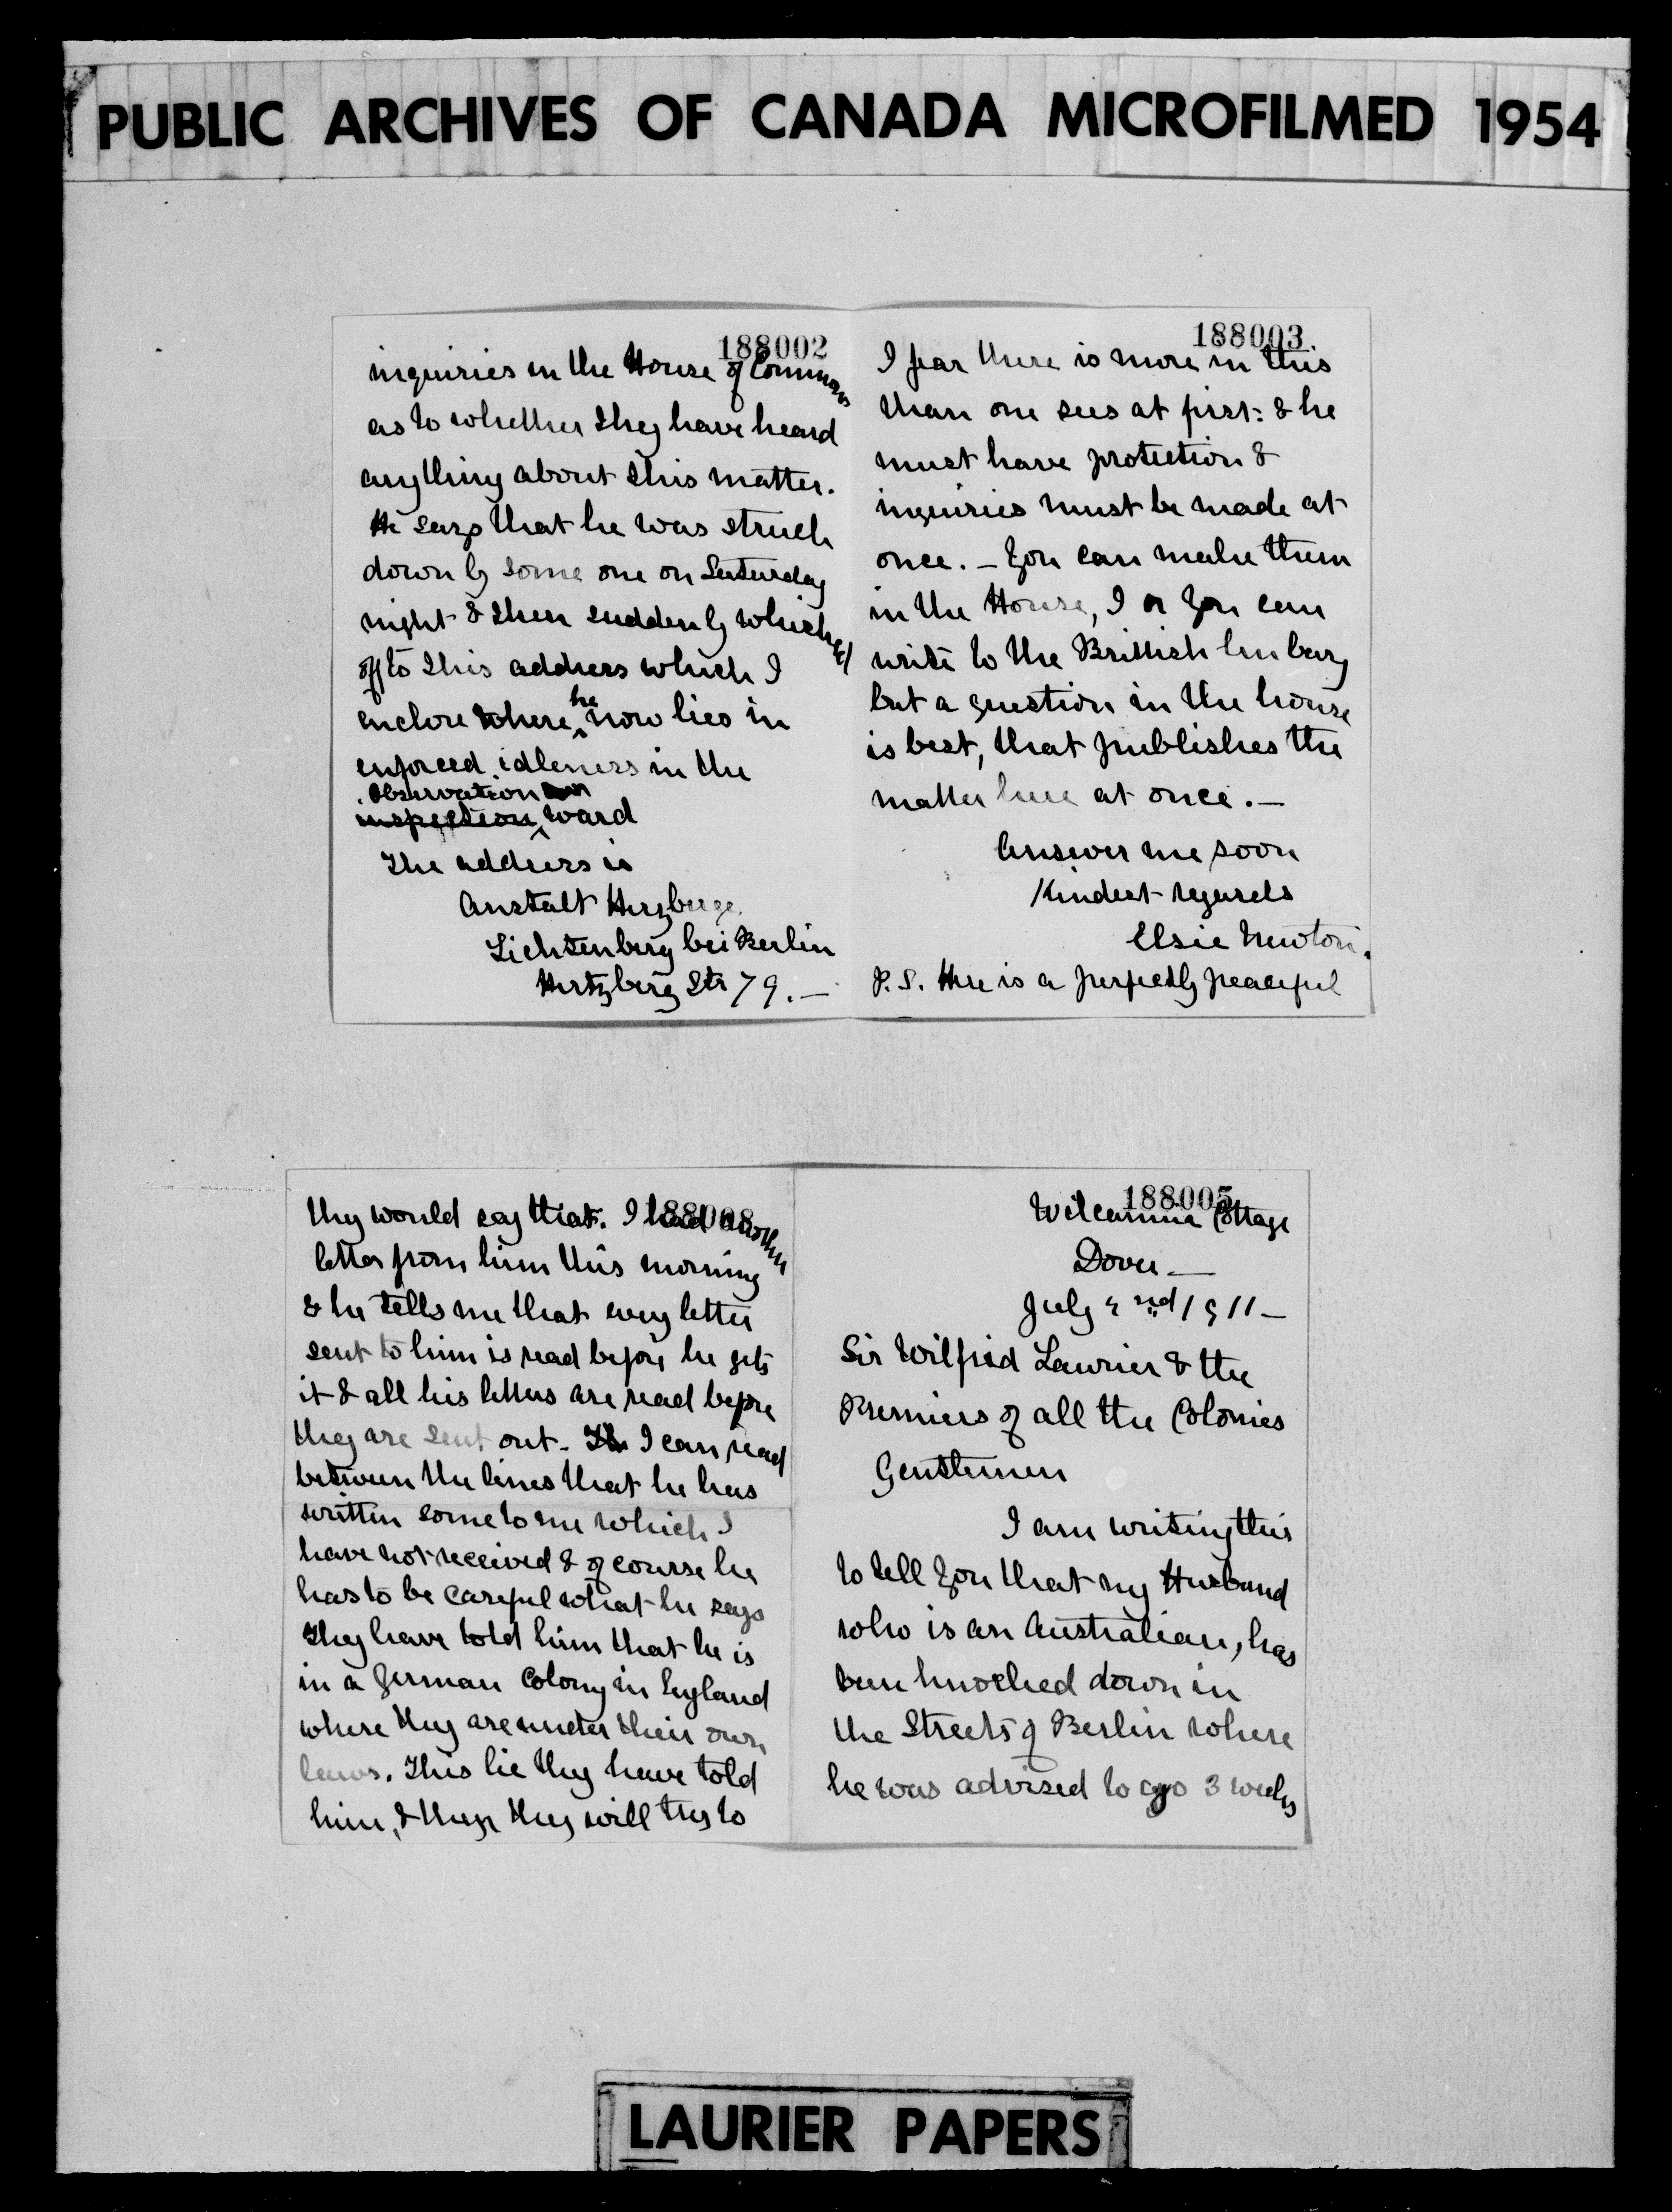 PUBLIC ARCHIVES OF CANADA MICROFILMED 1954
188002
inquiries in the House of Commons
as to whether they have heard
anything about this matter.
He says that he was struck
down by some one on Saturday
night & then suddenly whisked
off to this address which I
enclose where he now lies in
enforced idleness in the
observation
inspection ward
The address is
Anstalt Herzberge
Lichtenberg bei Berlin
Hertzberg Str 79. —
188003
I fear there is more in this
than one sees at first: & he
must have protection &
inquiries must be made at
once. — You can make them
in the House, I or you can
write to the Brittish Embasy
but a question in the house
is best, that publishes the
matter here at once. —
Answer me soon
Kindest regards
Elsie Newton.
P.S. He is a perfectly peaceful
188008
they would say that. I had another
letter from him this morning
& he tells me that every letter
sent to him is read before he gets
it & all his letters are read before
they are sent out. I can read
between the lines that he has
written some to me which I
have not received & of course he
has to be careful what he says
They have told him that he is
in a German Colony in England
where they are under their own
laws. This lie they have told
him, & they will try to
188005
Wilcannia Cottage
Dover —
July 2nd 1911 —
Sir Wilfrid Laurier & the
Premiers of all the Colonies
Gentlemen
I am writing this
to tell you that my Husband
who is an Australian, has
been knocked down in
the Streets of Berlin where
he was advised to go 3 weeks
LAURIER PAPERS